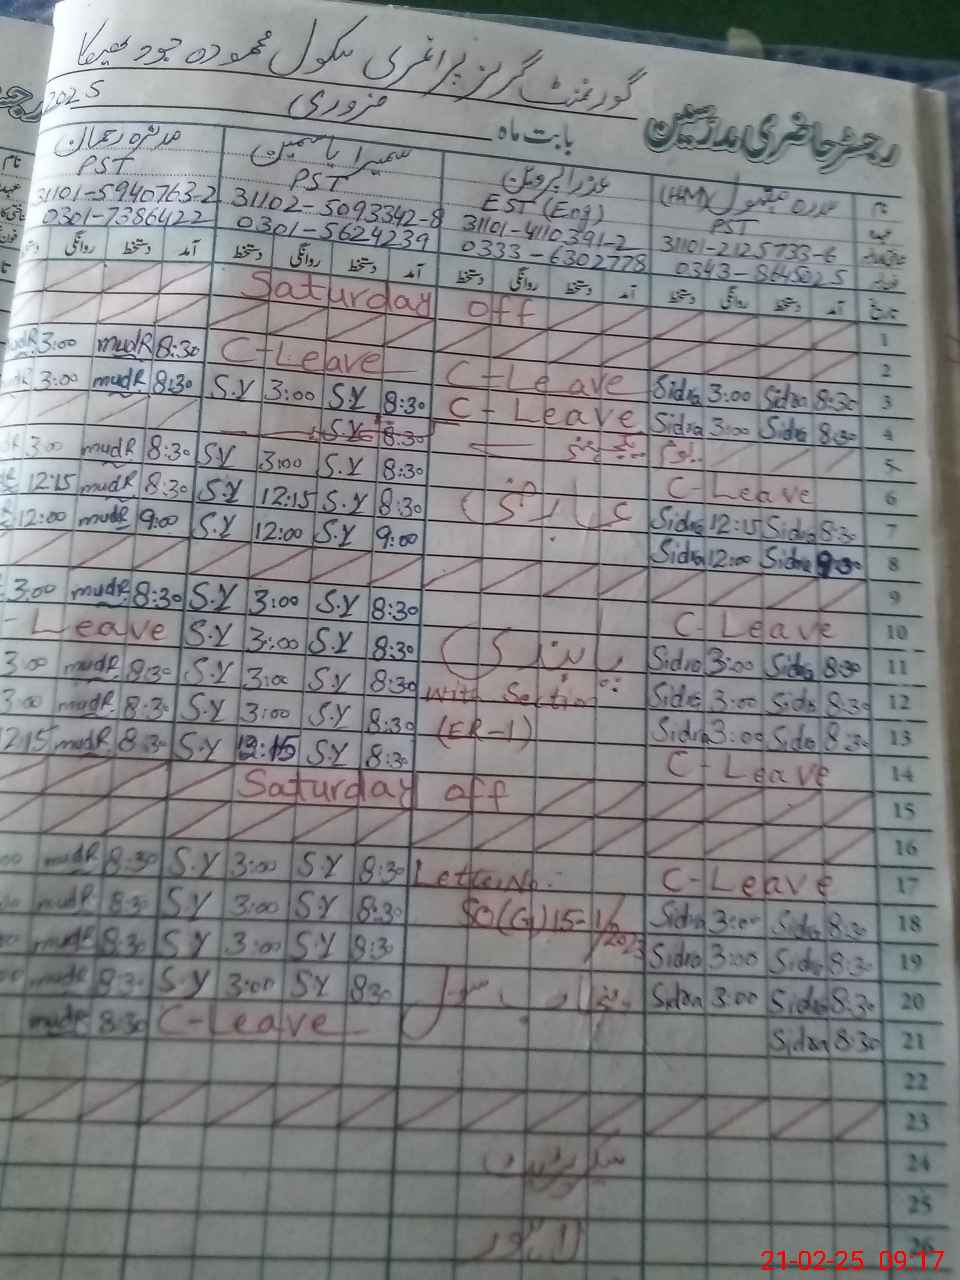 گورنمنٹ گرلز پرائمری سکول محمودہ
رجسٹر حاضری مدرسین بابت ماہ فروری 2025
نام سدرہ مقبول (HM) عذرا پروین سمیرا یاسمین مدثرہ رحمان
PST EST (Eng) PST PST
31101-2125733-6 31101-4110391-2 31102-5093342-8 31101-5940763-2
0343-8645025 0333-6302778 0301-5624239 0301-7386422
تاریخ آمد دستخط روانگی دستخط آمد دستخط روانگی دستخط آمد دستخط روانگی دستخط آمد دستخط روانگی
1 Saturday off
2
3 8:30 Sidra 3:00 Sidra C-Leave C-Leave 8:30 mudR 3:00
4 8:30 Sidra 3:00 Sidra C-Leave 8:30 S.Y 3:00 S.Y 8:30 mudR 3:00
5 8:30 S.Y
6 C-Leave 8:30 S.Y 3:00 S.Y 8:30 mudR 3:00
7 8:30 Sidra 12:15 Sidra 8:30 S.Y 12:15 S.Y 8:30 mudR 12:15
8 9:00 Sidra 12:00 Sidra 9:00 S.Y 12:00 S.Y 9:00 mudR 12:00
9
10 C-Leave 8:30 S.Y 3:00 S.Y 8:30 mudR 3:00
11 8:30 Sidra 3:00 Sidra 8:30 S.Y 3:00 S.Y Leave
12 8:30 Sidra 3:00 Sidra with Section 8:30 S.Y 3:00 S.Y 8:30 mudR 3:00
13 8:30 Sidra 3:00 Sidra (ER-1) 8:30 S.Y 3:00 S.Y 8:30 mudR 3:00
14 C-Leave 8:30 S.Y 12:15 S.Y 8:30 mudR 12:15
15 Saturday off
16
17 C-Leave Letter No: 8:30 S.Y 3:00 S.Y 8:30 mudR
18 8:30 Sidra 3:00 Sidra SO(G)15-1/2023 8:30 S.Y 3:00 S.Y 8:30 mudR
19 8:30 Sidra 3:00 Sidra 8:30 S.Y 3:00 S.Y 8:30 mudR
20 8:30 Sidra 3:00 Sidra 8:30 S.Y 3:00 S.Y 8:30 mudR
21 8:30 Sidra C-Leave 8:30 mudR
22
23
24
25
26 لاہور
21-02-25 09:17